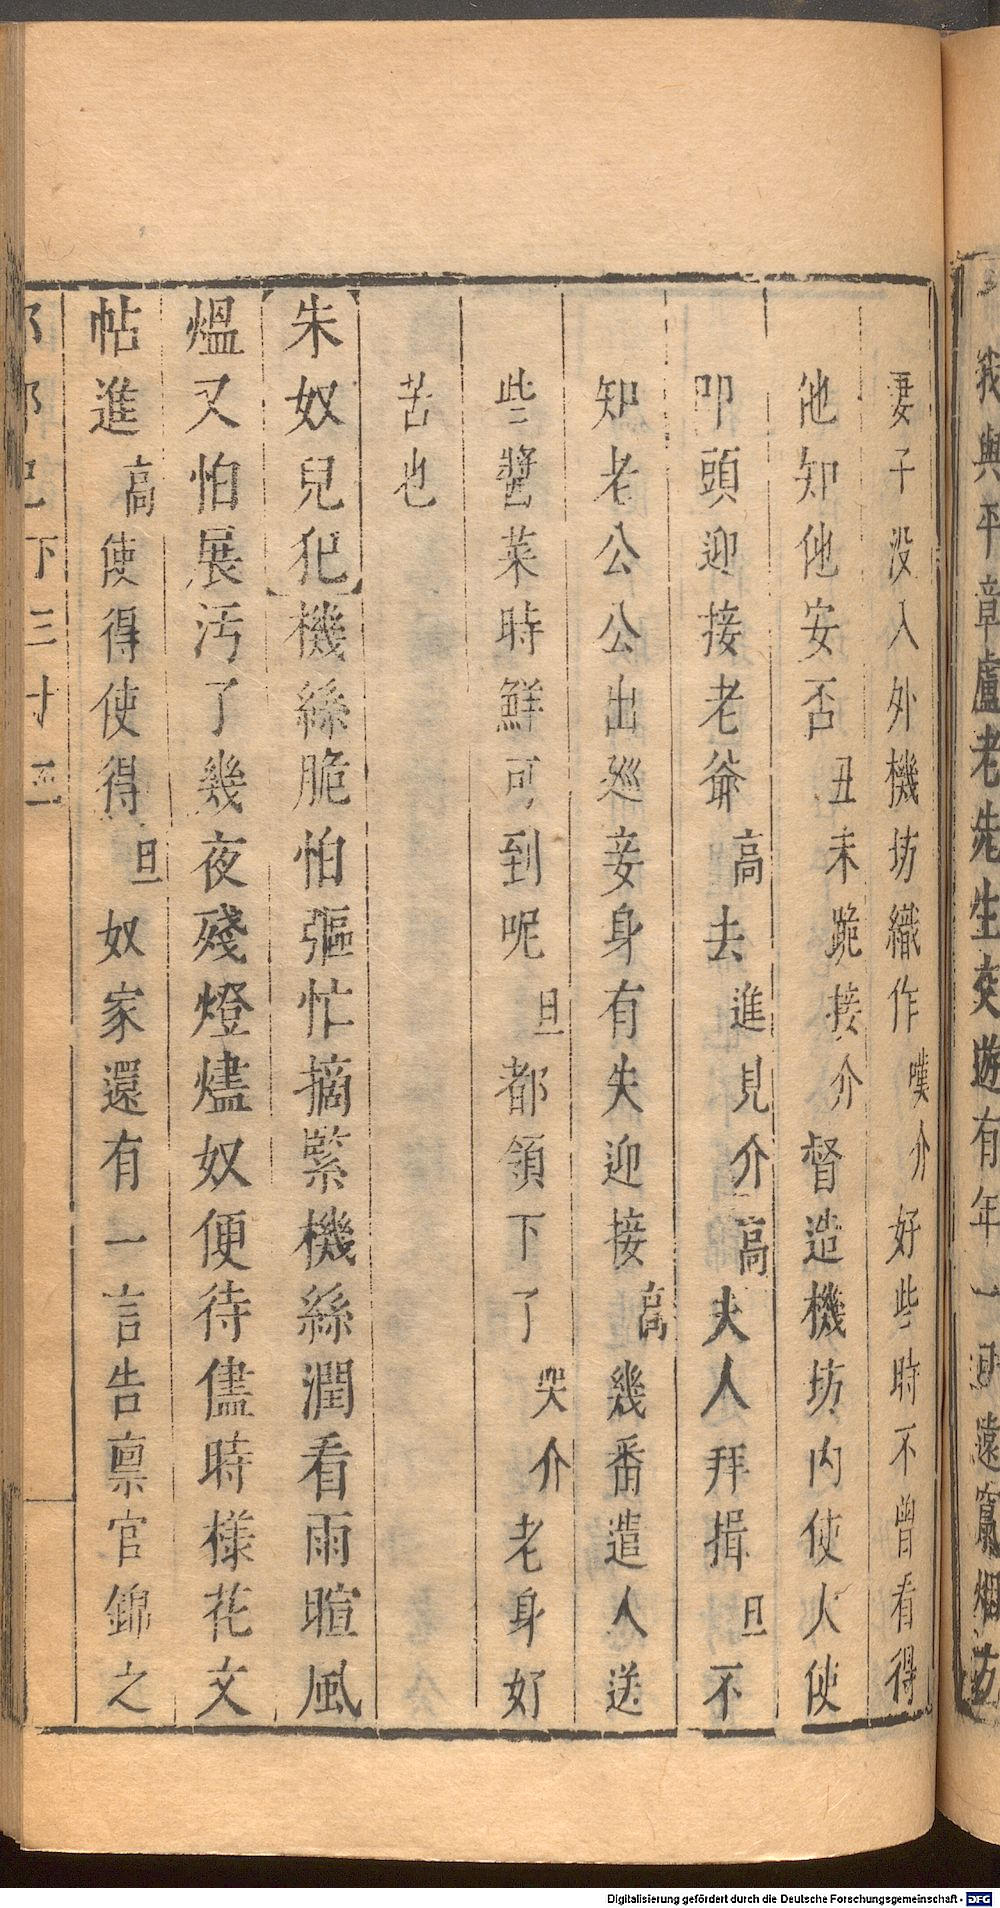 我與平章盧老先生交遊有年一
妻子没入外機坊織作嘆介好些時不曾看得
他知他安否丑末跪接介督造機坊内使大使
叩頭迎接老爺高去進見介高夫人拜揖旦不
知老公公出巡妾身有失迎接高幾番遣人送
些醬菜時鮮可到呢旦都領下了哭介老身好
苦也
【朱奴兒犯】機絲脆怕彄忙摘緊機絲潤看雨暄風
熅又怕展汚了幾夜殘燈燼奴便待儘時樣花文
帖進高使得使得旦奴家還有一言告禀官錦之
下三十五
Digitalisierung gefördert durch die Deutsche Forschungsgemeinschaft - DFG